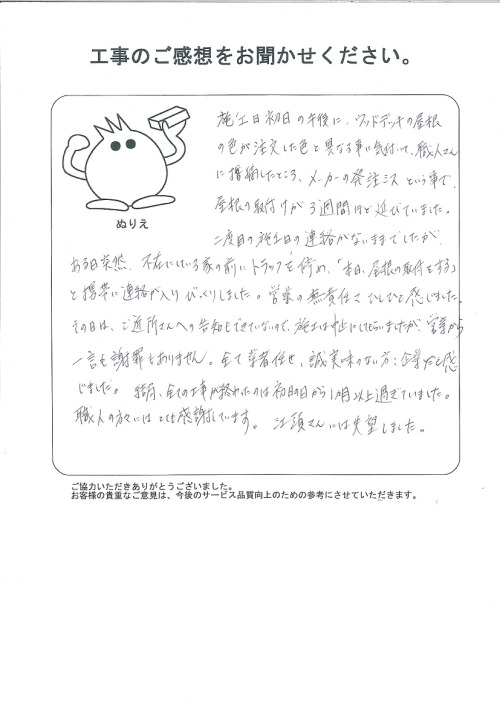 工事のご感想をお聞かせください。
施工日初日の午後に、ウッドデッキの屋根
の色が注文した色と異なる事に気付いて、職人さん
に指摘したところ、メーカーの発注ミスという事で、
屋根の取付けが3週間ほど延びていました。
二度目の施工日の連絡がないままでしたが、
ある日突然、不在にしている家の前にトラックを停め、「本日、屋根の取付をする」
と携帯に連絡が入りびっくりしました。営業の無責任さひしひしと感じました。
その日は、ご近所さんへの告知もできていないので、施工は中止にしてもらいましたが、営業から
一言も謝罪もありません。全て業者任せ、誠実味のない方;企業だと感
じました。結局、全ての工事が終わったのは初日の日から1ヶ月以上過ぎていました。
職人の方々にはとても感謝しています。江頭さんには失望しました。
ぬりえ
ご協力いただきありがとうございました。
お客様の貴重なご意見は、今後のサービス品質向上のための参考にさせていただきます。